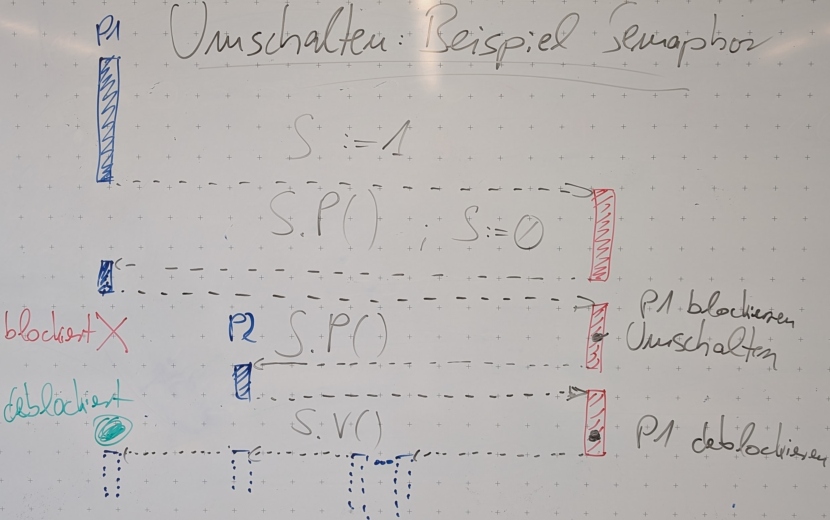 P1
Umschalten: Beispiel Semaphor
S :=1
S.P() ; S:=0
P1 blockieren
blockiert X P2 S.P() Umschalten
deblockiert
S.V() P1 deblockieren